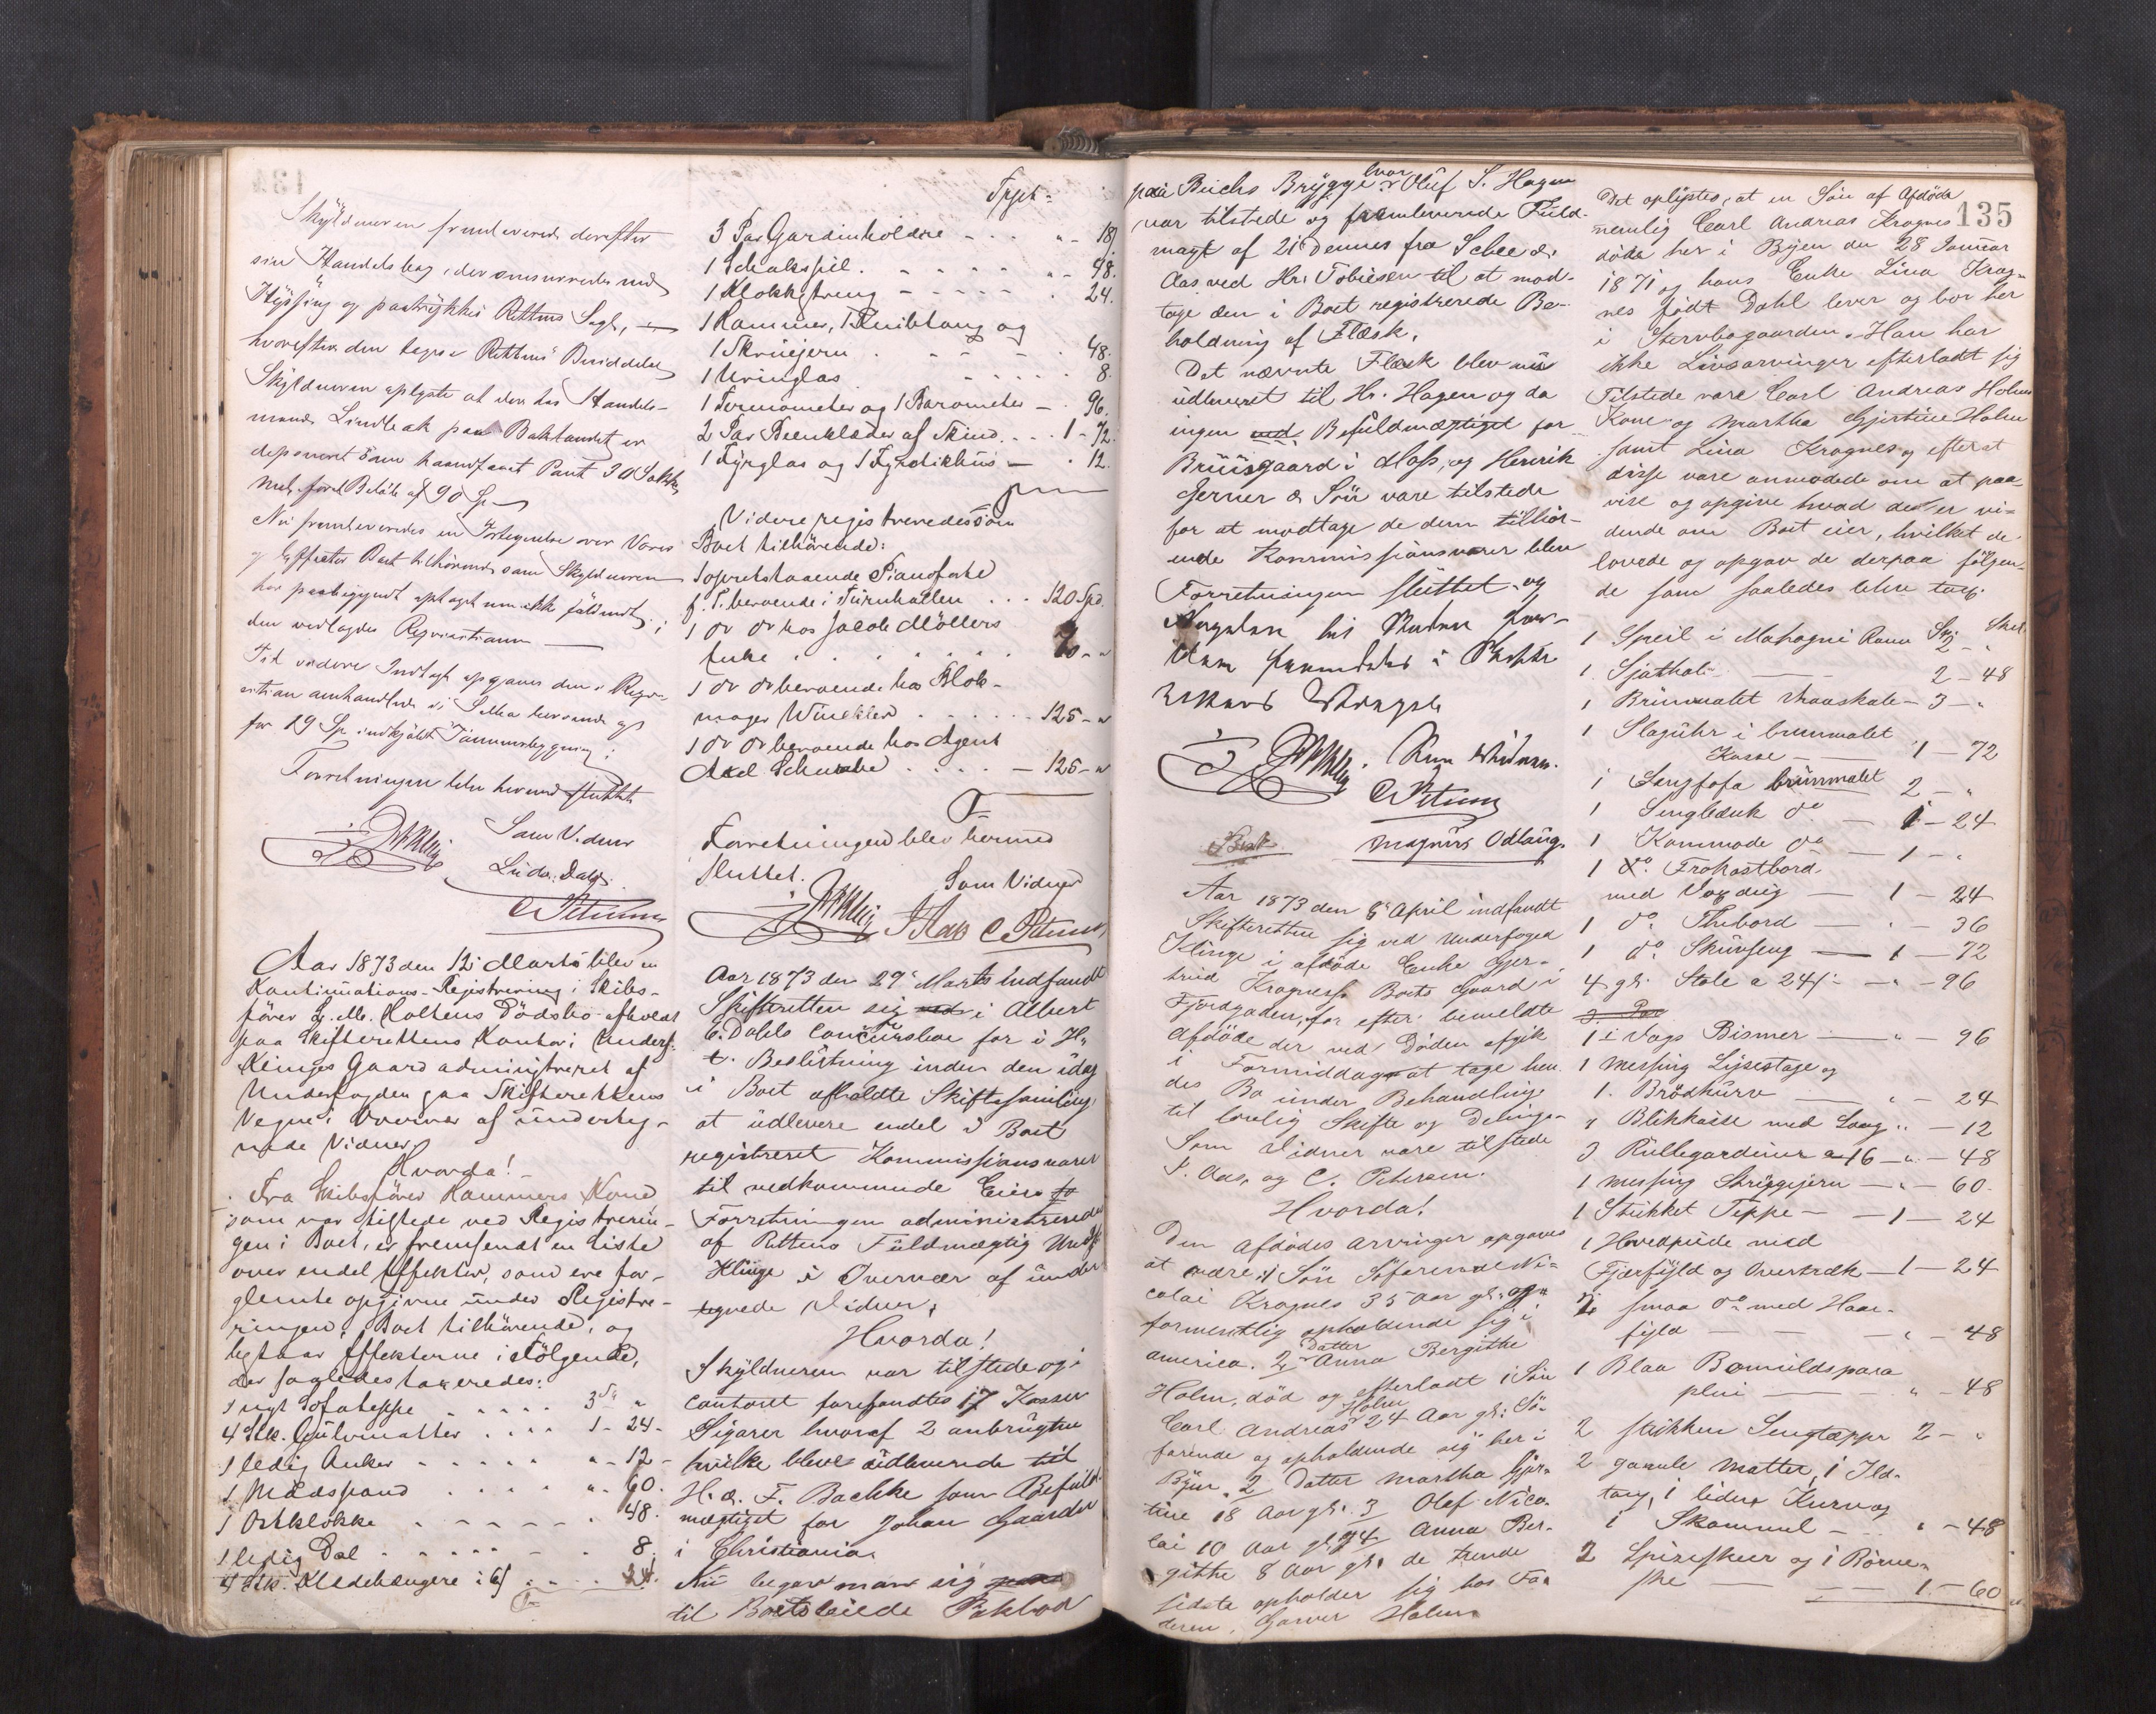 Skyldneren fremleverede derefter
sin Handelsbog, der omsnoredes med
Hyssing og paatrykkes Rettens Segl,
hvorefter den toges i Rettens Besiddelse
Skyldneren oplyste at der hos Handels-
mand Lindbak paa Baklandet er
deponeret som haandfaaet Pant 30 Sække
Mel for et Beløb af 90 Sp
Nu fremleveredes en Fortegnelse over Varer
og Effecter Boet tilhørende som Skyldneren
har paabegyndt optaget men ikke fuldendt;
den vedlagdes Requisitionen
Til videre Indtægt opgaves den i Requi-
sitionen omhandlede i Selba
for 19 Sp indkjøbt Tømmerbygning;
Forretningen blev hermed sluttet
Klinge Som Vidner
Ludv. Dahl
C Petersen
Aar 1873 den 12te Marts blev en
Kontinuations-Registrering i Skibs-
fører L. M. Holtens Dødsbo afholdt
paa Skifterettens Kontor i Underf:
Klinges Gaard administreret af
Underfogden paa Skifterettens
Vegne i Overvær af underteg-
nede Vidner
Hvorda!
Fra Skibsfører Hammers Kone
som var tilstede ved Registrerin-
gen i Boet, er fremsendt en Liste
over endel Effekter, som ere for-
glemte opgivne under Registre-
ringen, Boet tilhørende, og
bestaar Effekterne i Følgende,
der saaledes taxeredes:
1 nyt Sofateppe . . . . 3 Sp "
4 Stk. Gulvmatter . . . . 1 - 24 -
1 ledig Anker - - - - - " - 12 -
1 Madspand . . . . . " . 60.
1 Ostklokke - - - - - . 48.
1 ledig Dal - - - - - - . 8.
4 Stk. Klædehængere à 6 s . . . . 24.
Tspt:
3 Par Gardinholdere - - - " - 18
1 Schakspil. - - - - - " - 48.
1 Klokkestreng - - - - - . 24.
1 Hammer, 1 Knibtang og
1 Skruejern . - - - - . 48.
1 Uringlas - - - - - 8.
1 Termometer og 1 Barometer - . 96.
2 Par Benklæder af Skind. - . . 1 - 72.
1 Fyrglas og 1 Fyrstikhus - . 12.
Videre registreredes som
Boet tilhørende:
1 opretstaaende Pianoforte
f. T. beroende i Turnhallen . . . 120 Spd.
1 do do hos Jacob Møllers
Enke . . . . . . . 90 - "
1 do do beroende hos Blok-
mager Winckler . . . . . . 125 - "
1 do do beroende hos Agent
Axel Schwabe . . . . - 125 - "
Forretningen blev hermed
sluttet.
Som Vidner
Klinge P Aas C Petersen
Aar 1873 den 29de Marts indfandt
Skifteretten sig ved i Albert
E. Dahls Concursboe for i H.
t. Beslutning inden den idag
i Boet afholdte Skiftesamling
at udlevere endel i Boet
registreret Kommissionsvarer
til vedkommende Eiere fo
Forretningen administreredes
af Rettens Fuldmægtig Underf
Klinge i Overvær af under
tegnede Vidner.
Hvorda!
Skyldneren var tilstede og i
Contoret forefandtes 17 Kasser
Sigarer hvoraf 2 anbrugte
hvilke bleve udleverede til
H. A. F. Bachke som Befuld
mægtiget for Johan Gaarder
i Christiania
Nu begav man sig paa
til Boets leiede Pakbod
135
paa Buchs Brygge hvor Oluf S. Hagen
var tilstede og fremleverede Fuld-
magt af 21de Dennes fra Schee &
Aas ved Hr. Tobiesen til at mod-
tage den i Boet registrerede Be-
holdning af Flæsk.
Det nævnte Flæsk blev nu
udleveret til Hr. Hagen og da
ingen ved Befuldmægtiget for
Bruusgaard i Moss, og Henrik
Gerner & Søn vare tilstede
for at modtage de dem tilhør-
ende Kommissionsvarer blev
Forretningen sluttet og
Klinge Som Vidner.
C Petersen
Magnus Odlaug.
Aar 1873 den 8de April indfandt
Skifteretten sig ved Underfoged
Klinge i afdøde Enke Gjer-
trud Kragnes's Boets Gaard i
Fjordgaden, for efter bemeldte
Afdøde der ved Døden afgik
i Formiddag at tage hen-
des Bo under Behandling
til lovlig Skifte og Delinge.
Som Vidner vare tilstede
P. Aas, og C. Petersen.
Hvorda!
Den Afdødes Arvinger opgaves
at være: 1 Søn Søfarende Ni-
colai Kragnes 35 Aar gl: og
formentlig opholdende sig i
America. 2 Datter Anna Bergithe
Holm, død og efterladt 1 Søn
Carl Andreas Holm 24 Aar gl: Sø-
farende og opholdende sig her i
Byen. 2 Datter Martha Gjer-
tine 18 Aar gl: 3 Olaf Nico-
lai 10 Aar gl: 4 Anna Ber-
githe 8 Aar gl. de trende
sidste opholder sig hos Fa-
deren, Garver Holm
Det oplystes, at en Søn af Afdøde
nemlig Carl Andreas Kragnes
døde her i Byen den 28 Januar
1871 og hans Enke Lina Krag-
nes født Dahl lever og bor her
i Stervbogaarden. Han har
ikke Livsarvinger efterladt sig
Tilstede vare Carl Andreas Holms
Kone og Martha Gjertine Holm
samt Lina Kragnes og efterat
disse vare anmodede om at paa-
vise og opgive hvad de er vi-
dende om Boet eier, hvilket de
lovede og opgav de derpaa følgen-
de som saaledes blev tax.
Sp: Skil.
1 Speil i Mahogni Rame 2 - "
1. Sjathol - - - 2 - 48
1 Brunmalet Chaaskab - 3 - "
1 Slaguhr i brunmalet
Kasse - - 1 - 72
1 Sengsofa brunmalet 2 - "
1 Sengbænk do - 1 - 24
1 Kommode do - 1 - "
1 do. Frokostbord
med Voxdug - 1 - 24
1 do. Thebord - " - 36
1 do. Skuvseng - 1 - 72
4 gl. Stole a 24 s - " - 96
3 Par
1 i Vags Bismer - " - 96
1 Messing Lysestage og
1. Brødkurv - " - 24
1 Blikkasse med Laag " - 12
3 Rullegardiner a 16 - " - 48
1 Messing Strygejern - " - 60
1 Stukket Teppe - - 1 - 24
1 Hovedpude med
Fjærfyld og Overtræk - 1 - 24
2 smaa do med Haar-
fyld - - - " - 48
1 Blaa Bomuldspara
plui - - " - 48
2 stukken Sengtæpper 2 - "
2 gamle Matter, 1 Ild-
tang, 1 liden Kurv og
1 Skammel - . . " - 48
2 Spiseskeer og 1 Børne-
ske - - - 1 - 60